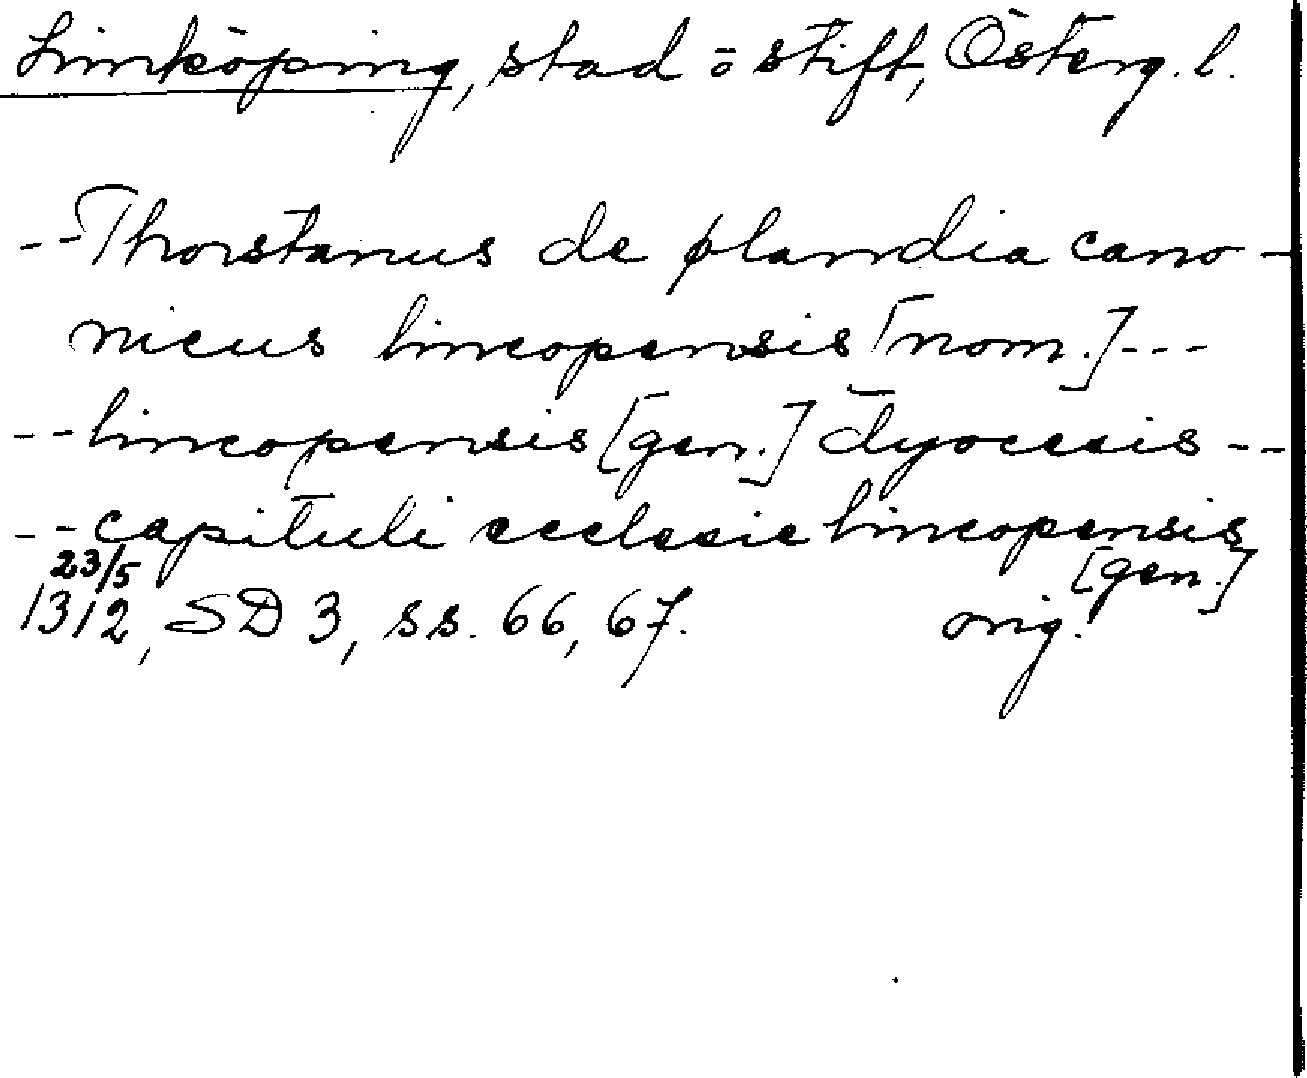 Linköping, stad o stift, Österg. l.
-- Thorstanus de plandia cano-
nicus lincopensis [nom.] ---
-- lincopensis [gen.] dyocesis --
-- capituli ecclesie lincopensis
[gen.]
23/5
1312, SD 3, ss. 66, 67. orig.